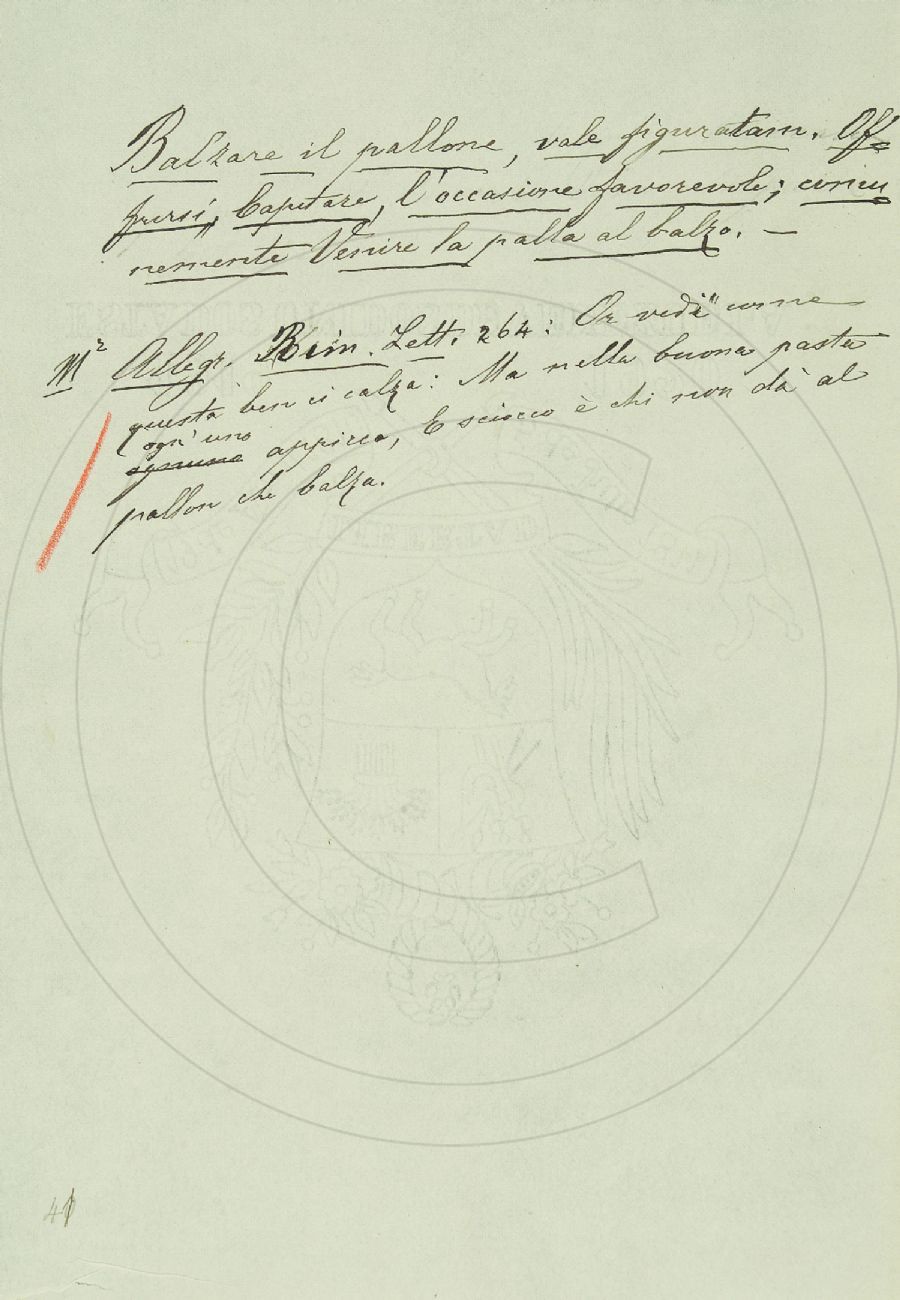 Balzare il pallone, vale figuratam. Of=
frirsi, Capitare, l'occasione favorevole; comu
nemente Venire la palla al balzo. —
Mr Allegr. Rim. Lett. 264: Or vedi come
questa ben ci calza: Ma nella buona pasta
ogn' uno
ognuno appicca, E sciocco è chi non dà al
pallon che balza.
41